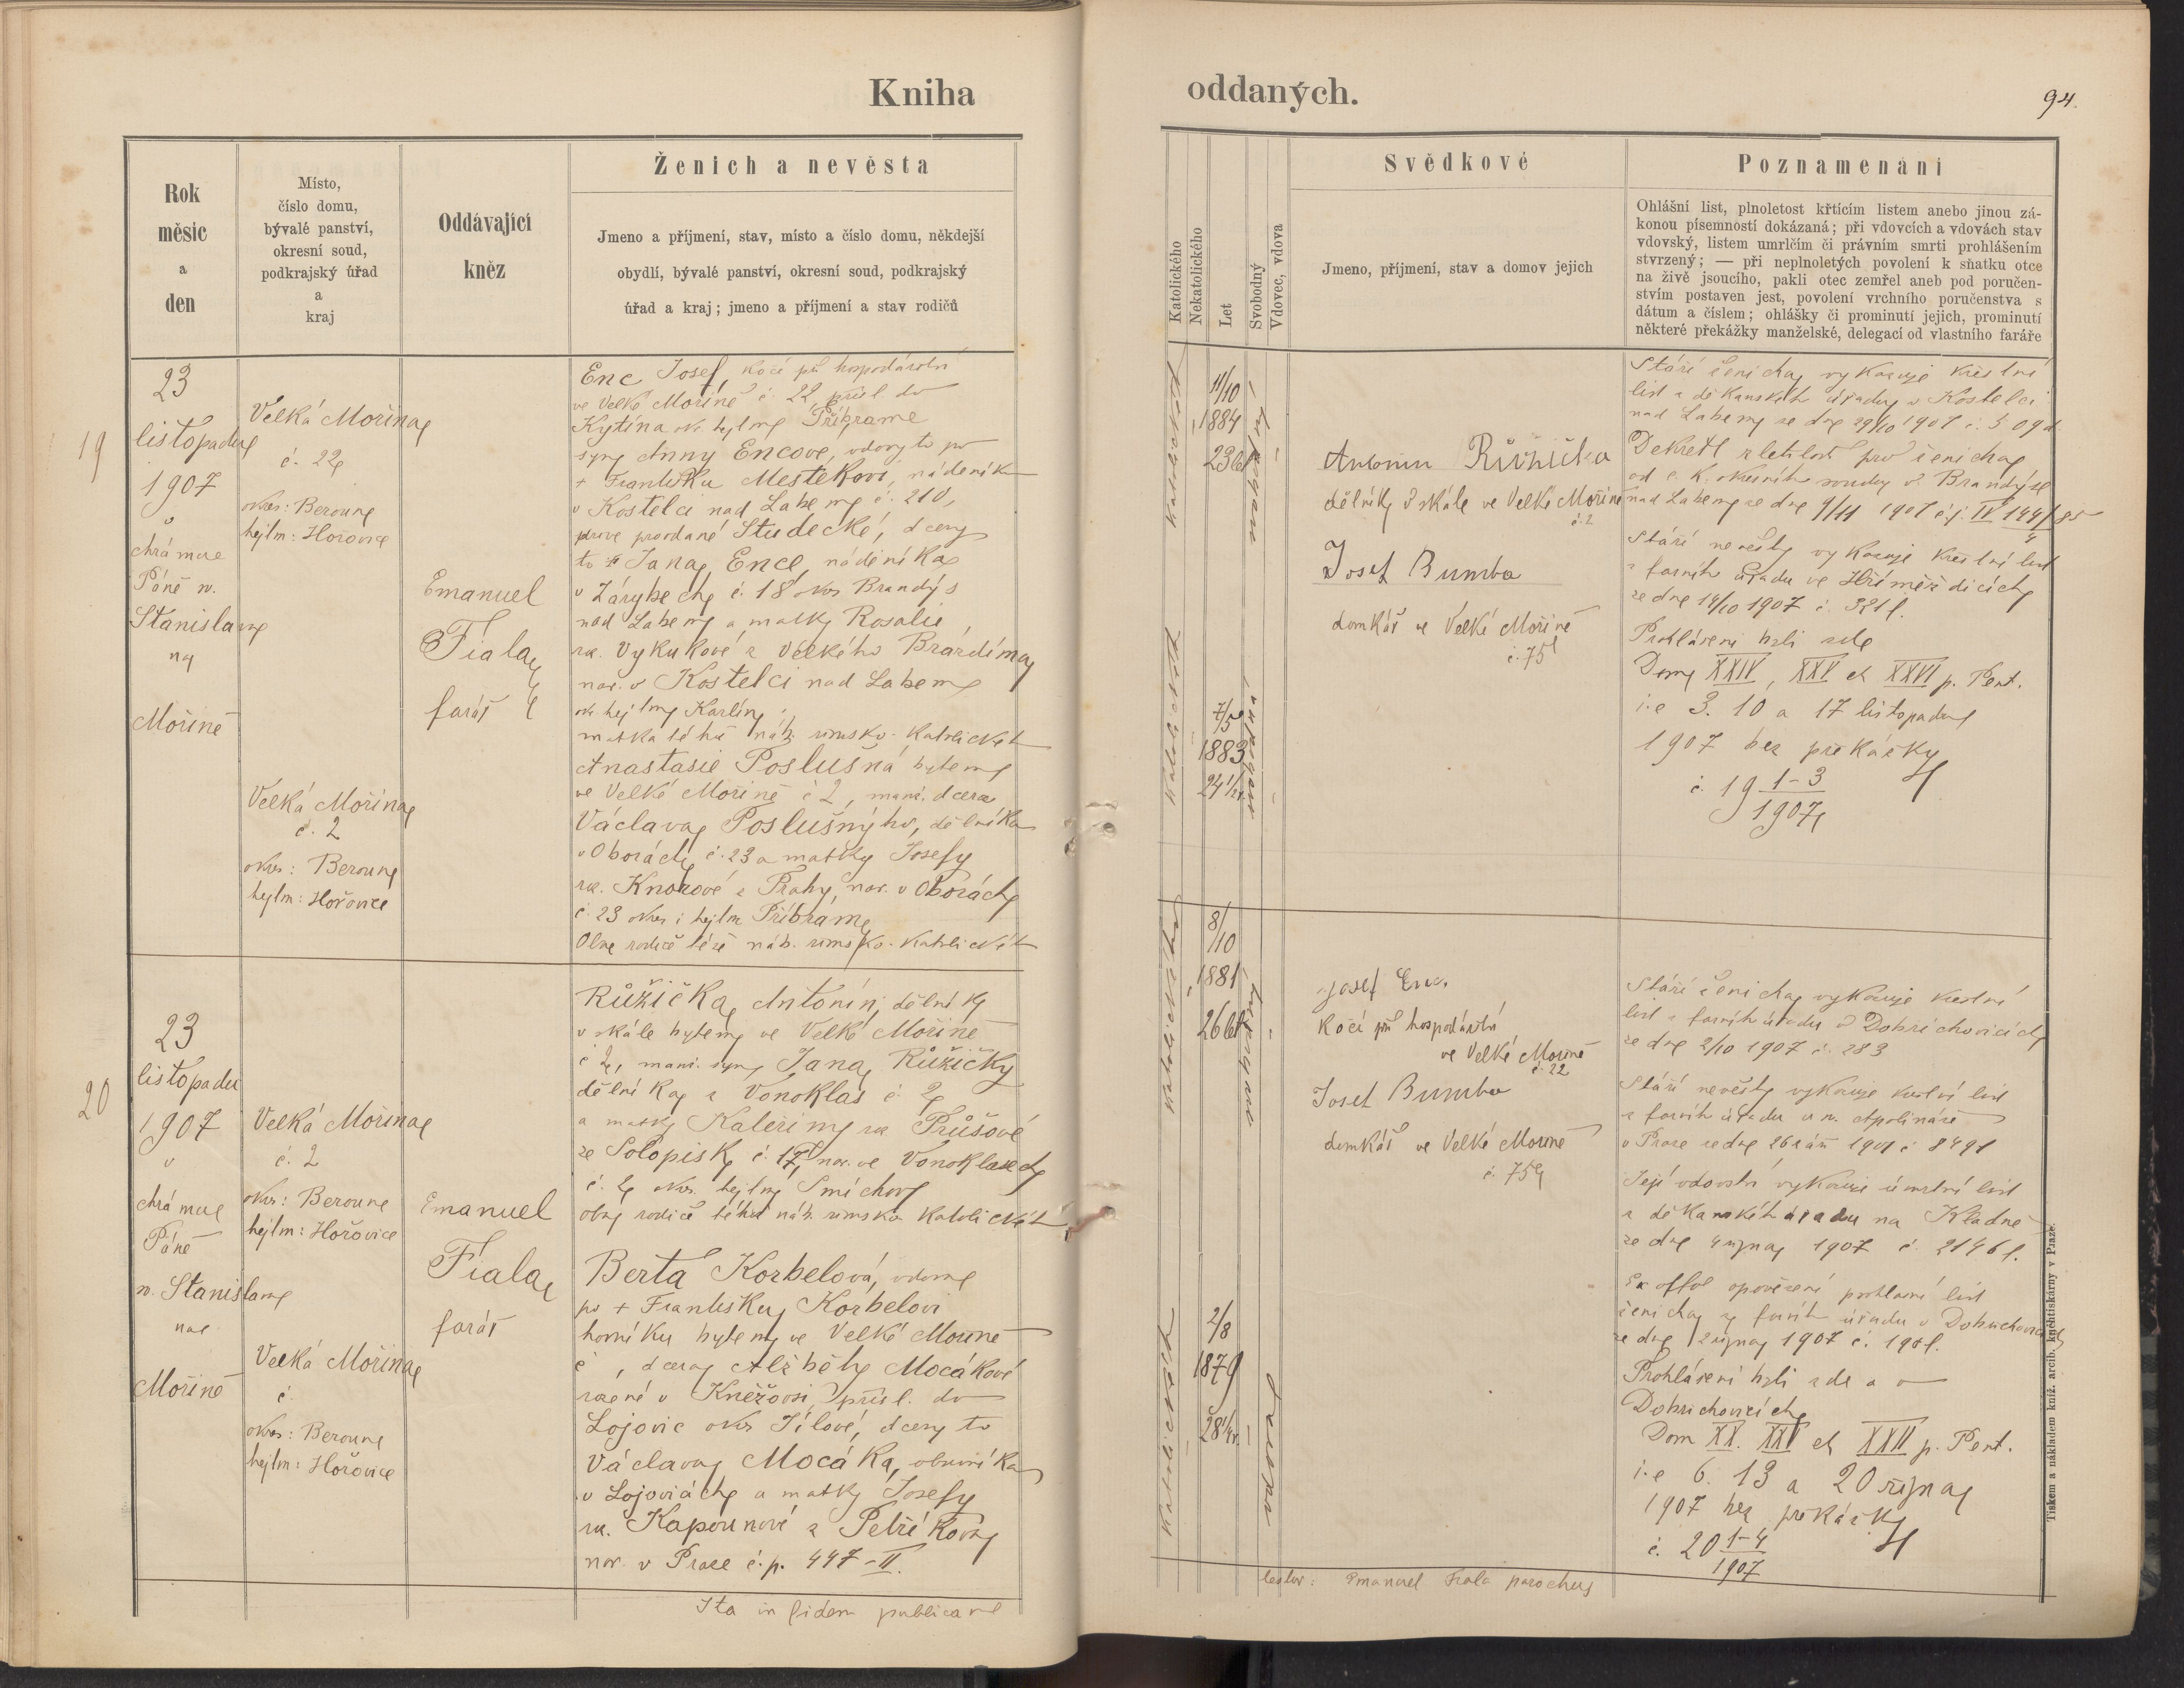 Kniha
oddaných.
94.
Rok
měsic
a
den
Místo,
číslo domu,
bývalé panství,
okresní soud,
podkrajský úřad
a
kraj
Oddávající
kněz
Ženich a nevěsta
Jmeno a příjmení, stav, místo a číslo domu, někdejší
obydlí, bývalé panství, okresní soud, podkrajský
úřad a kraj; jmeno a příjmení a stav rodičů
Katolického
Nekatolického
Let
Svobodný
Vdovec, vdova
Svědkové
Jmeno, příjmení, stav a domov jejich
Poznamenání
Ohlášní list, plnoletost křtícím listem anebo jinou zá-
konou písemností dokázaná; při vdovcích a vdovách stav
vdovský, listem umrlčím či právním smrti prohlášením
stvrzený; — při neplnoletých povolení k sňatku otce
na živě jsoucího, pakli otec zemřel aneb pod poručen-
stvím postaven jest, povolení vrchního poručenstva s
dátum a číslem; ohlášky či prominutí jejich, prominutí
některé překážky manželské, delegací od vlastního faráře
19
23
listopadu
1907
v
chrámu
Páně sv.
Stanislava
na
Mořině
Velká Mořina
č. 22
okres: Beroun
hejtm: Hořovice
Velká Mořina
č. 2
okres: Beroun
hejtm: Hořovice
Emanuel
Fiala
farář
Enc Josef, kočí při hospodářství
ve Velké Mořině č. 22, přísl. do
Kytína okr. hejtm. Příbram
syn Anny Encové, vdovy to po
+ Františku Mestekovi, nádeník
v Kostelci nad Labem č. 210,
prve provdané Studecké, dcery
to + Jana Ence, nádeníka
v Zárybech č. 18 okres Brandýs
nad Labem a matky Rosalie,
roz. Vykukové z Velkého Brázdima
nar. v Kostelci nad Labem
ok. hejtm. Karlín
matka téhož náb. římsko-katolického
Anastasie Poslušná bytem
ve Velké Mořině č 2, manž. dcera
Václava Poslušného, dělníka
v Oborách č. 23 a matky Josefy
roz. Knorové z Prahy, nar. v Oborách
č. 23 okres i hejtm. Příbram
Oba rodiče téže náb. římsko-katolického
katolického
11/10
1884
23 let
svobodný
katolického
7/5
1883
24 1/2 r.
svobodná
Antonín Růžička
dělník v skále ve Velké Mořině
č. 2
Josef Bumba
domkář ve Velké Mořině
č. 75
Stáří ženicha vykazuje křestní
list z děkanského úřadu v Kostelci
nad Labem ze dne 29/10 1907 č. 509
Dekret zletilosti pro ženicha
od c. k. okresního soudu v Brandýse
nad Labem ze dne 9/11 1907
Stáří nevěsty vykazuje křestní list
z farního úřadu ve Hříměždicích
ze dne 14/10 1907 č. 321
Prohlášeni byli zde
Dom XXIV, XXV et XXVI p. Pent.
i.e 3. 10 a 17 listopadu
1907 bez překážky
č. 19 1-3
1907
20
23
listopadu
1907
v
chrámu
Páně
sv. Stanislava
na
Mořině
Velká Mořina
č. 2
okres: Beroun
hejtm: Hořovice
Velká Mořina
č.
okres: Beroun
hejtm: Hořovice
Emanuel
Fiala
farář
Růžička Antonín, dělník
v skále bytem ve Velké Mořině
č 2, manž. syn Jana Růžičky
dělníka z Vonoklas č. 2
a matky Kateřiny roz. Průšové
ze Solopisk č. 17, nar. ve Vonoklasech
č. 2 okres. hejtm. Smíchov
oba rodiče téhož náb. římsko katolického
Berta Korbelová, vdova
po + Františku Korbelovi
horníku bytem ve Velké Mořině
č , dcera Alžběty Mocákové
v Kněžovsi, přísl. do
Lojovic okres Jílové, dcery to
Václava Mocáka, obuvníka
v Lojovicích a matky Josefy
roz. Kapounové z Petříkova
nar. v Praze č.p. 447-II.
Ita in fidem publicam
katolického
8/10
1881
26 let
svobodný
katolického
2/8
1879
28 1/4 r.
vdova
Josef Enc.
kočí při hospodářství
ve Velké Mořině
č. 22
Josef Bumba
domkář ve Velké Mořině
č. 75
Stáří ženicha vykazuje křestní
list z farního úřadu v Dobřichovicích
ze dne 2/10 1907 č. 283
Stáří nevěsty vykazuje křestní list
z farního úřadu u sv. Apolináře
v Praze ze dne 26 září 1901 č 8491
Její vdovství vykazuje úmrtní list
z děkanského úřadu na Kladně
ze dne 4 října 1907 č. 2146
Ex offo opovězení prohlášní list
ženicha z farního úřadu v Dobřichovicích
ze dne 2 října 1907 č. 190
Prohlášeni byli zde a v
Dobřichovicích
Dom XX. XXI et XXII p. Pent.
i.e 6. 13 a 20 října
1907 bez překážky
č. 20 1-4
1907
testor: Emanuel Fiala parochus
Tiskem a nákladem kniž. arcib. knihtiskárny v Praze.